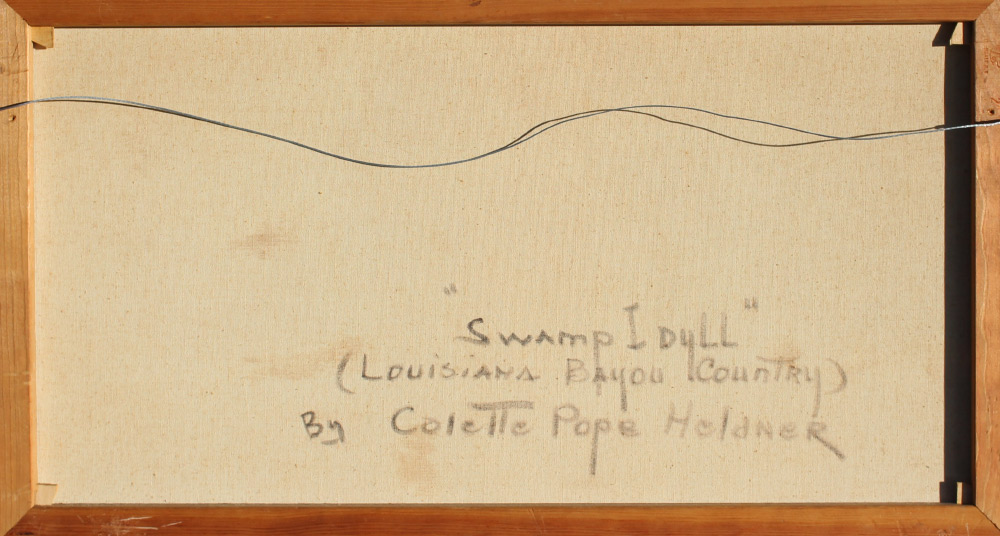 "Swamp Idyll"
(Louisiana Bayou Country)
By Colette Pope Heldner